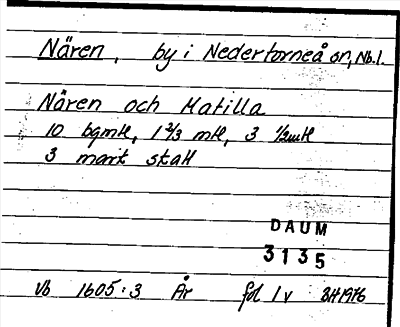 Nären, by i Nedertorneå sn, Nb.l.
Nären och Matilla
10 bgmtl, 1 2/3 mtl, 3 1/2mtl
3 mark skatt
DAUM
3135
Vb 1605:3 År fol 1v BH1976